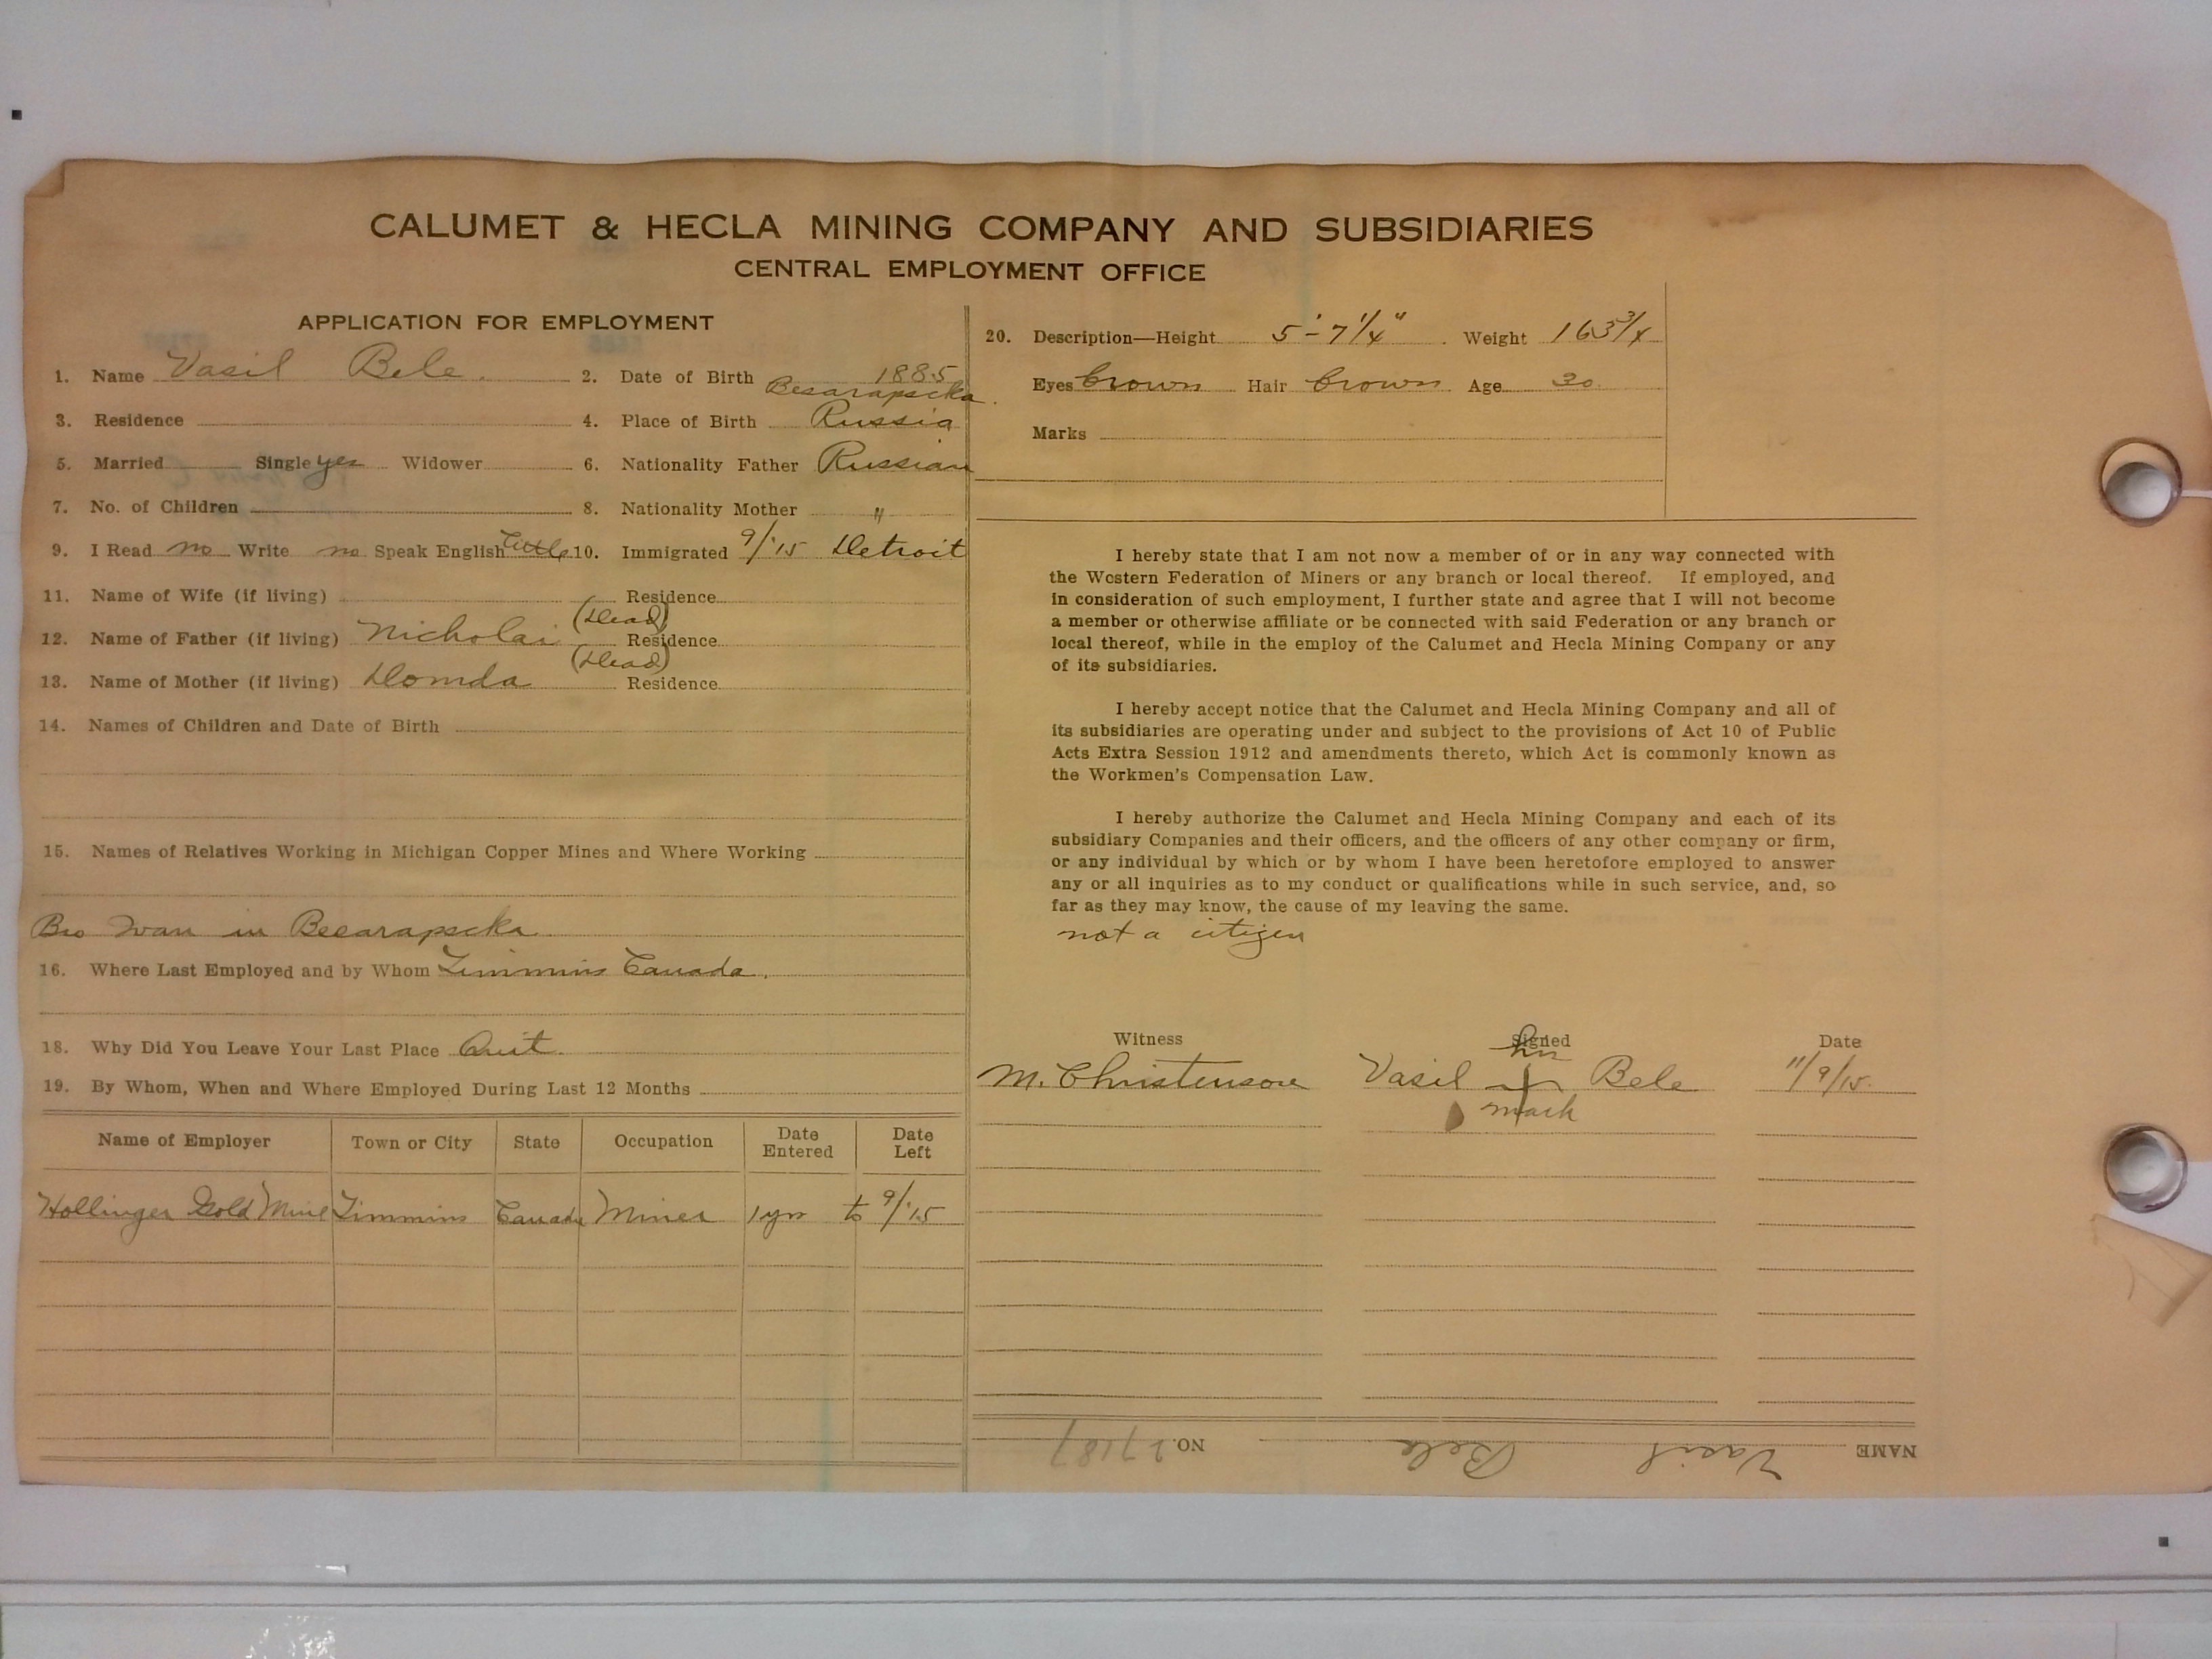 CALUMET & HECLA MINING COMPANY AND SUBSIDIARIES
CENTRAL EMPLOYMENT OFFICE
APPLICATION FOR EMPLOYMENT
1. Name Vasil Bele. 2. Date of Birth 1885
Besarapscka.
3. Residence 4. Place of Birth Russia
5. Married Single yes Widower 6. Nationality Father Russian
7. No. of Children 8. Nationality Mother "
9. I Read no Write no Speak English little 10. Immigrated 9/'15 Detroit
11. Name of Wife (if living) Residence
12. Name of Father (if living) Nicholai (Dead) Residence
13. Name of Mother (if living) Domda (Dead) Residence
14. Names of Children and Date of Birth
15. Names of Relatives Working in Michigan Copper Mines and Where Working
Bro Ivan in Besarapscka
16. Where Last Employed and by Whom Timmins Canada.
18. Why Did You Leave Your Last Place Quit.
19. By Whom, When and Where Employed During Last 12 Months
Name of Employer Town or City State Occupation Date Entered Date Left
Hollinger Gold Mine Timmins Canada Miner 1 yr to 9/'15
20. Description—Height 5'-7 1/4" Weight 163 3/4
Eyes brown Hair brown Age 30
Marks
I hereby state that I am not now a member of or in any way connected with
the Western Federation of Miners or any branch or local thereof. If employed, and
in consideration of such employment, I further state and agree that I will not become
a member or otherwise affiliate or be connected with said Federation or any branch or
local thereof, while in the employ of the Calumet and Hecla Mining Company or any
of its subsidiaries.
I hereby accept notice that the Calumet and Hecla Mining Company and all of
its subsidiaries are operating under and subject to the provisions of Act 10 of Public
Acts Extra Session 1912 and amendments thereto, which Act is commonly known as
the Workmen's Compensation Law.
I hereby authorize the Calumet and Hecla Mining Company and each of its
subsidiary Companies and their officers, and the officers of any other company or firm,
or any individual by which or by whom I have been heretofore employed to answer
any or all inquiries as to my conduct or qualifications while in such service, and, so
far as they may know, the cause of my leaving the same.
not a citizen
Witness Signed Date
his
M. Christenson Vasil + Bele 11/9/15.
mark
NAME Vasil Bele NO. 27187